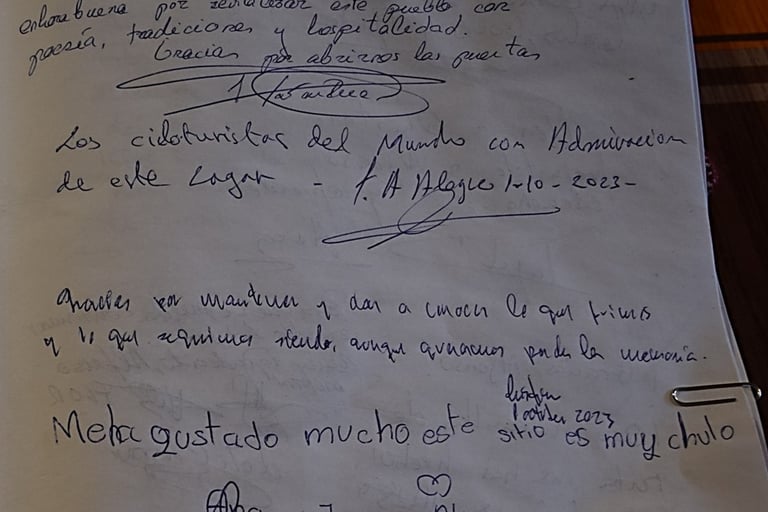 enhorabuena por revalorizar este pueblo con
poesía, tradiciones y hospitalidad.
Gracias por abrirnos las puertas
Los cicloturistas del Mundo con Admiracion
de este Lugar - f. A Alegre 1-10-2023-
Gracias por mantener y dar a conocer lo que fuimos
y lo que seguimos siendo, aunque queramos perder la memoria.
1 octubre 2023
Meha gustado mucho este sitio es muy chulo